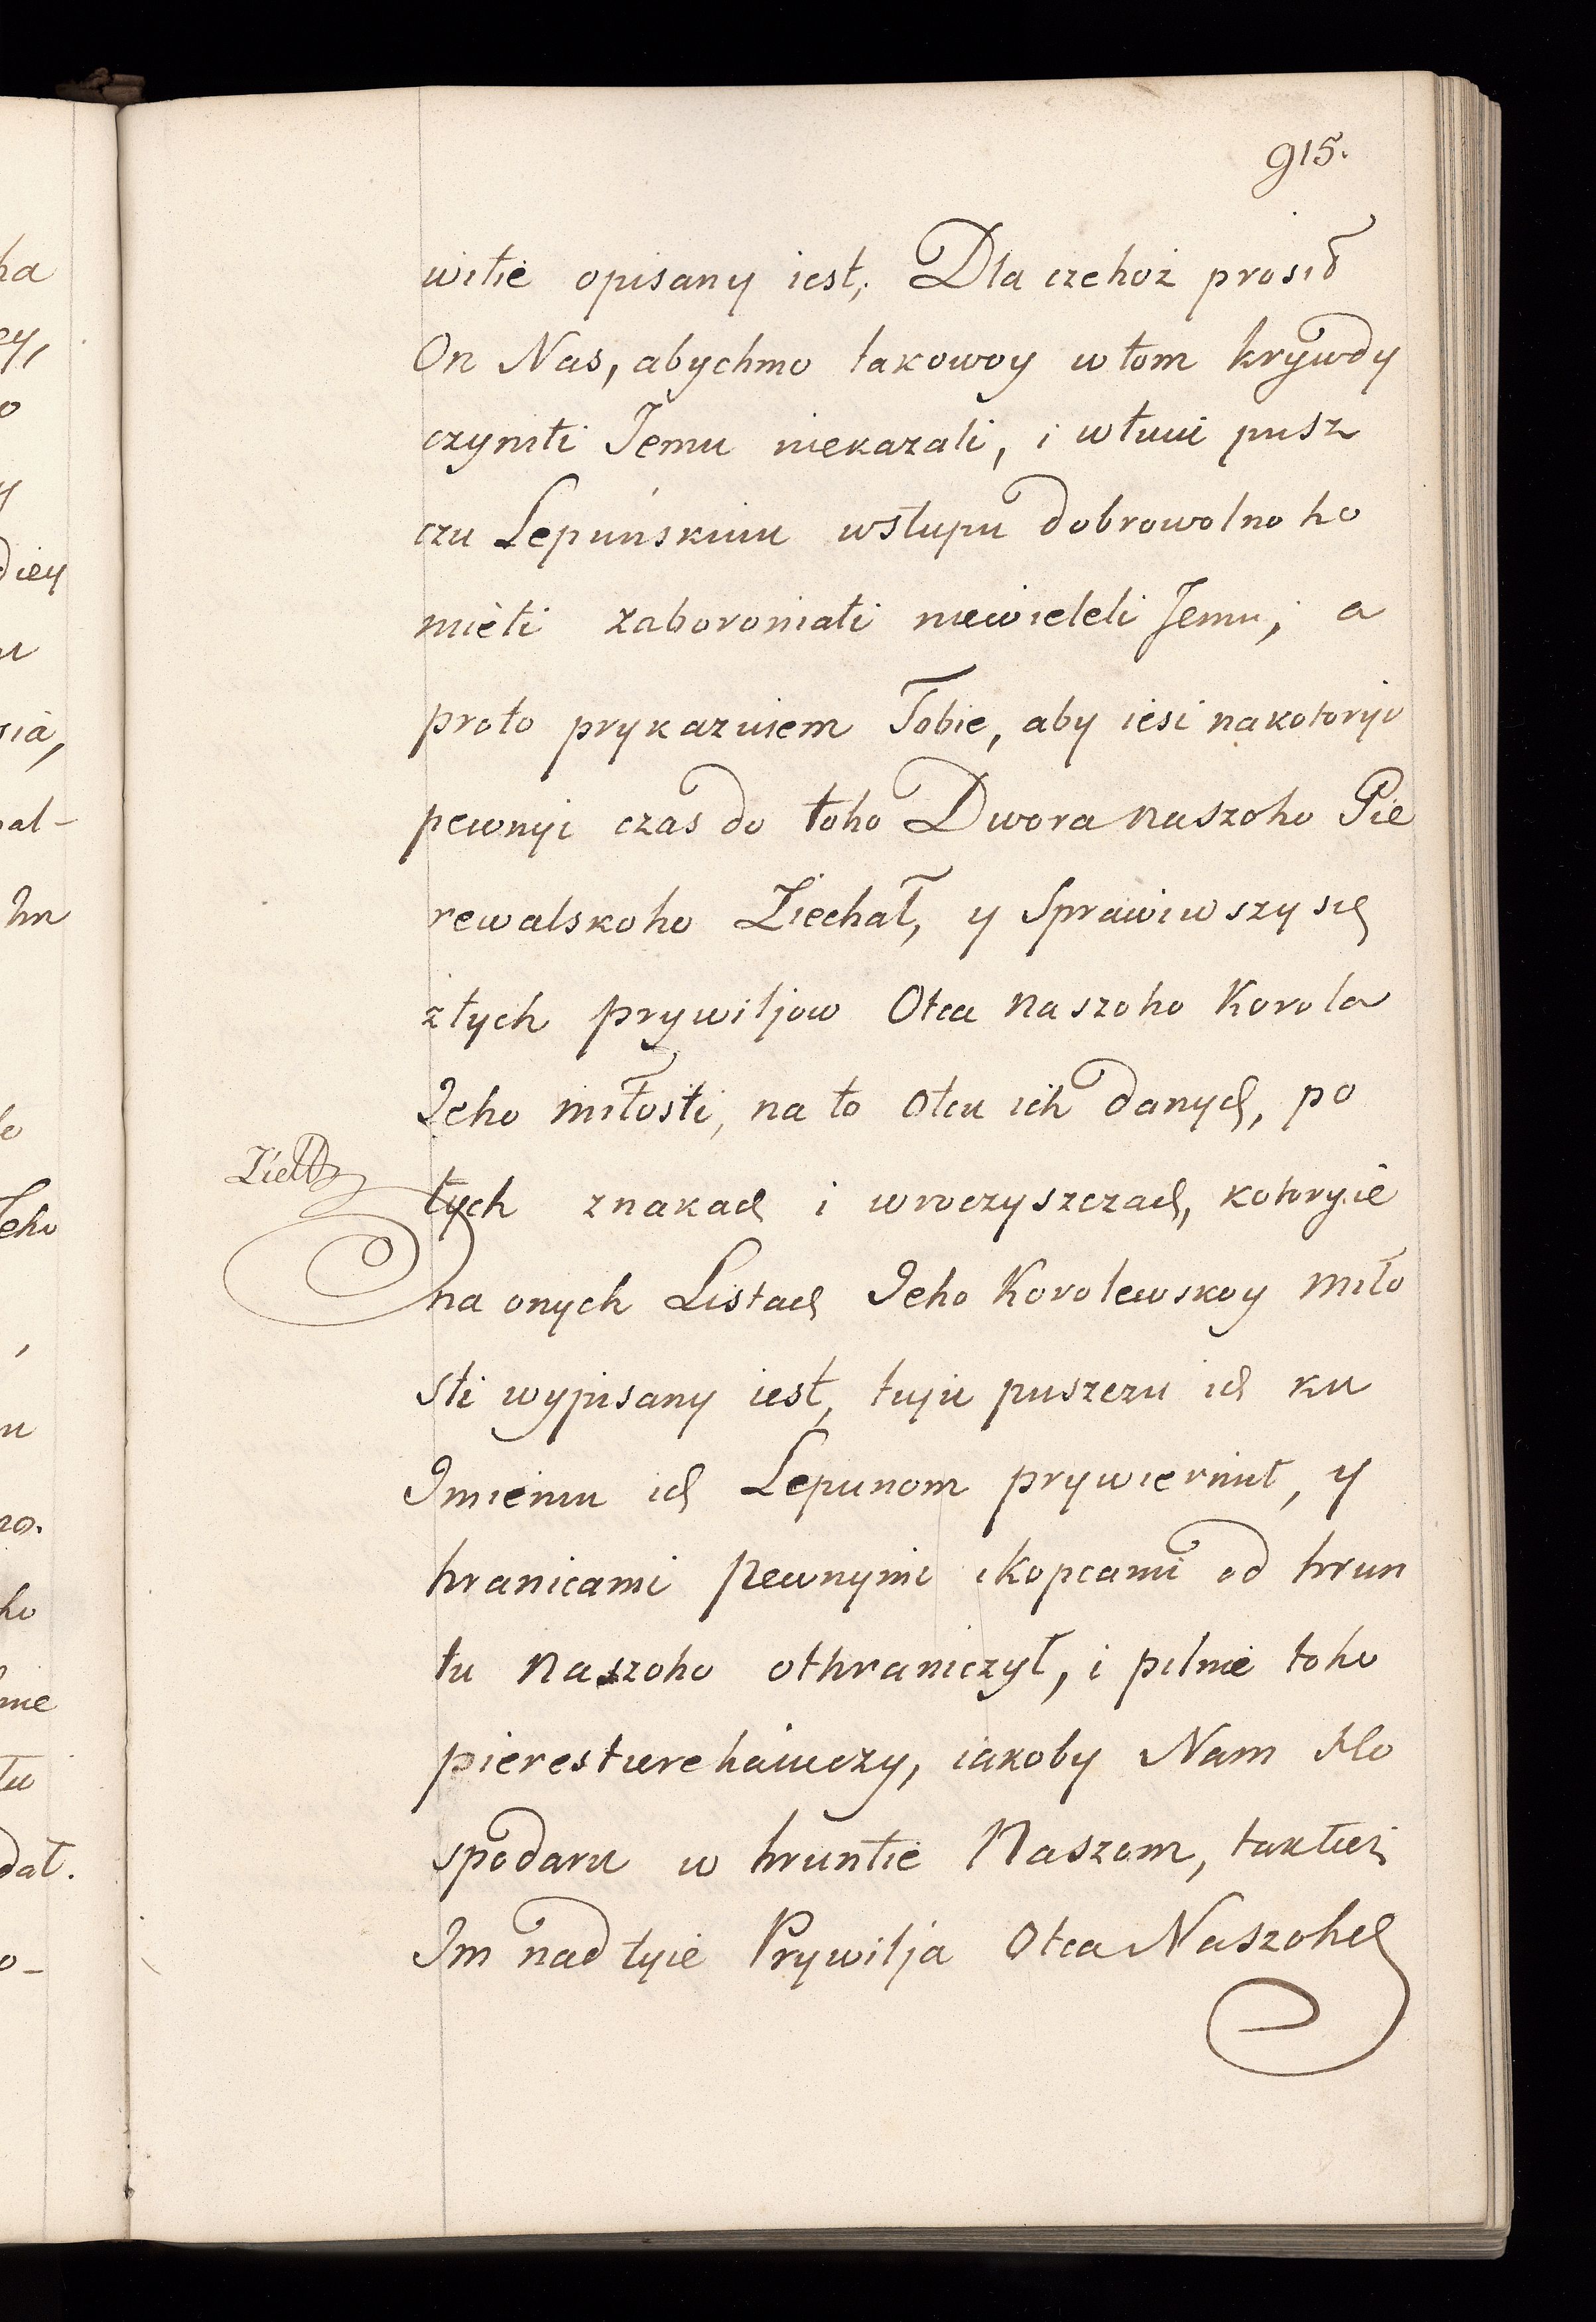 915.
witie opisany iest, Dla czehoż prosił
On Nas, abychmo takowoy w tom krywdy
czyniti Jemu niekazali, i w tuiu pusz
czu Lepuńskuiu wstupu dobrowolnoho
mieti zaboroniati niewieleli Jemu, a
proto prykazuiem Tobie, aby iesi nakotoryi
pewnyi czas do toho Dwora naszoho Pie
rewalskoho Ziechał, y Sprawiwszy się
z tych prywiljow Otca naszoho Korola
Jeho miłosti, na to otcu ich danych, po
Liett
tych znakach i wroczyszczach, kotoryie
na onych Listach Jeho Korolewskoy miło
sti wypisany iest, tuju puszczu ich ku
Imieniu ich Lepunom prywiernuł, y
hranicami pewnymi i kopcami od hrun
tu naszoho othraniczył, i pilnie toho
pierestierehaiuczy, iakoby Nam Ho
spodaru w hruntie Naszom, taktież
Im nad tyie Prywilja Otca Naszoho
ha
ey,
o
y
diey
u
sia,
al-
hn
lo
Jeho
,
u
no.
ho
nie
tu
dał.
o-